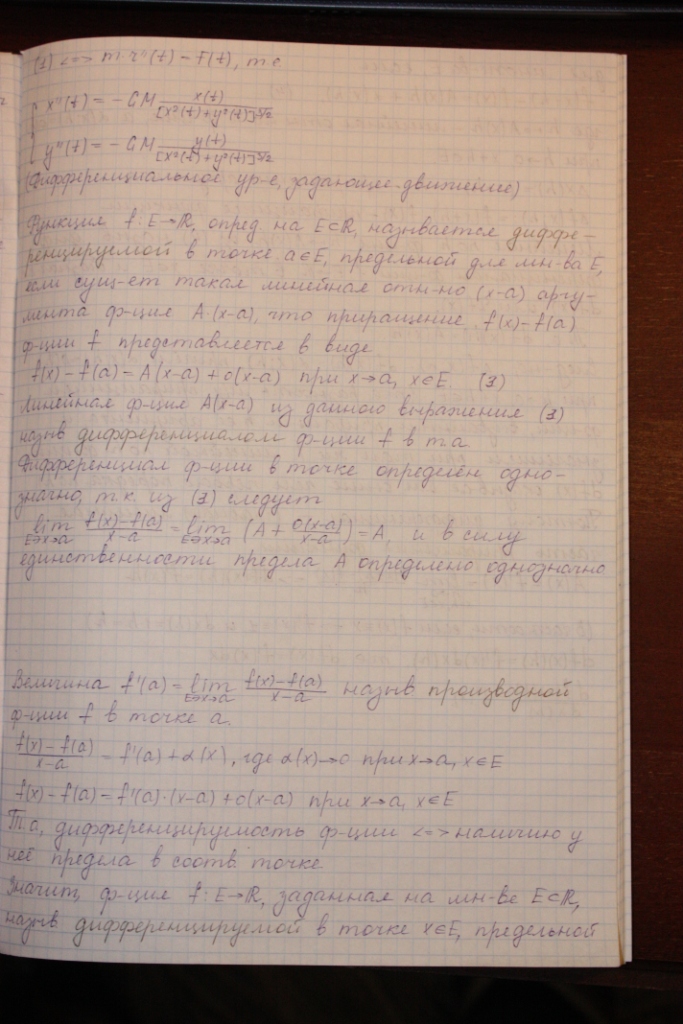 (1) <=> m·r''(t) = F(t), т.е.
x''(t) = - GM x(t)/[x²(t)+y²(t)]^3/2
y''(t) = - GM y(t)/[x²(t)+y²(t)]^3/2
(Дифференциальное ур-е, задающее движение)
Функция f: E→ℝ, опред. на E⊂ℝ, называется диффе-
ренцируемой в точке a∈E, предельной для мн-ва E,
если сущ-ет такая линейная отн-но (x-a) аргу-
мента ф-ция A·(x-a), что приращение f(x)-f(a)
ф-ции f представляется в виде
f(x)-f(a) = A(x-a) + o(x-a) при x→a, x∈E. (3)
Линейная ф-ция A(x-a) из данного выражения (3)
назыв дифференциалом ф-ции f в т.a.
Дифференциал ф-ции в точке определён одно-
значно, т.к. из (3) следует
lim E∋x→a f(x)-f(a)/x-a = lim E∋x→a (A + o(x-a)/x-a) = A, и в силу
единственности предела A определено однозначно
Величина f'(a) = lim E∋x→a f(x)-f(a)/x-a назыв производной
ф-ции f в точке a.
f(x)-f(a)/x-a = f'(a) + α(x), где α(x)→0 при x→a, x∈E
f(x)-f(a) = f'(a)·(x-a) + o(x-a) при x→a, x∈E
Т.о, дифференцируемость ф-ции <=> наличию у
неё предела в соотв. точке
Значит, ф-ция f: E→ℝ, заданная на мн-ве E⊂ℝ,
назыв дифференцируемой в точке x∈E, предельной